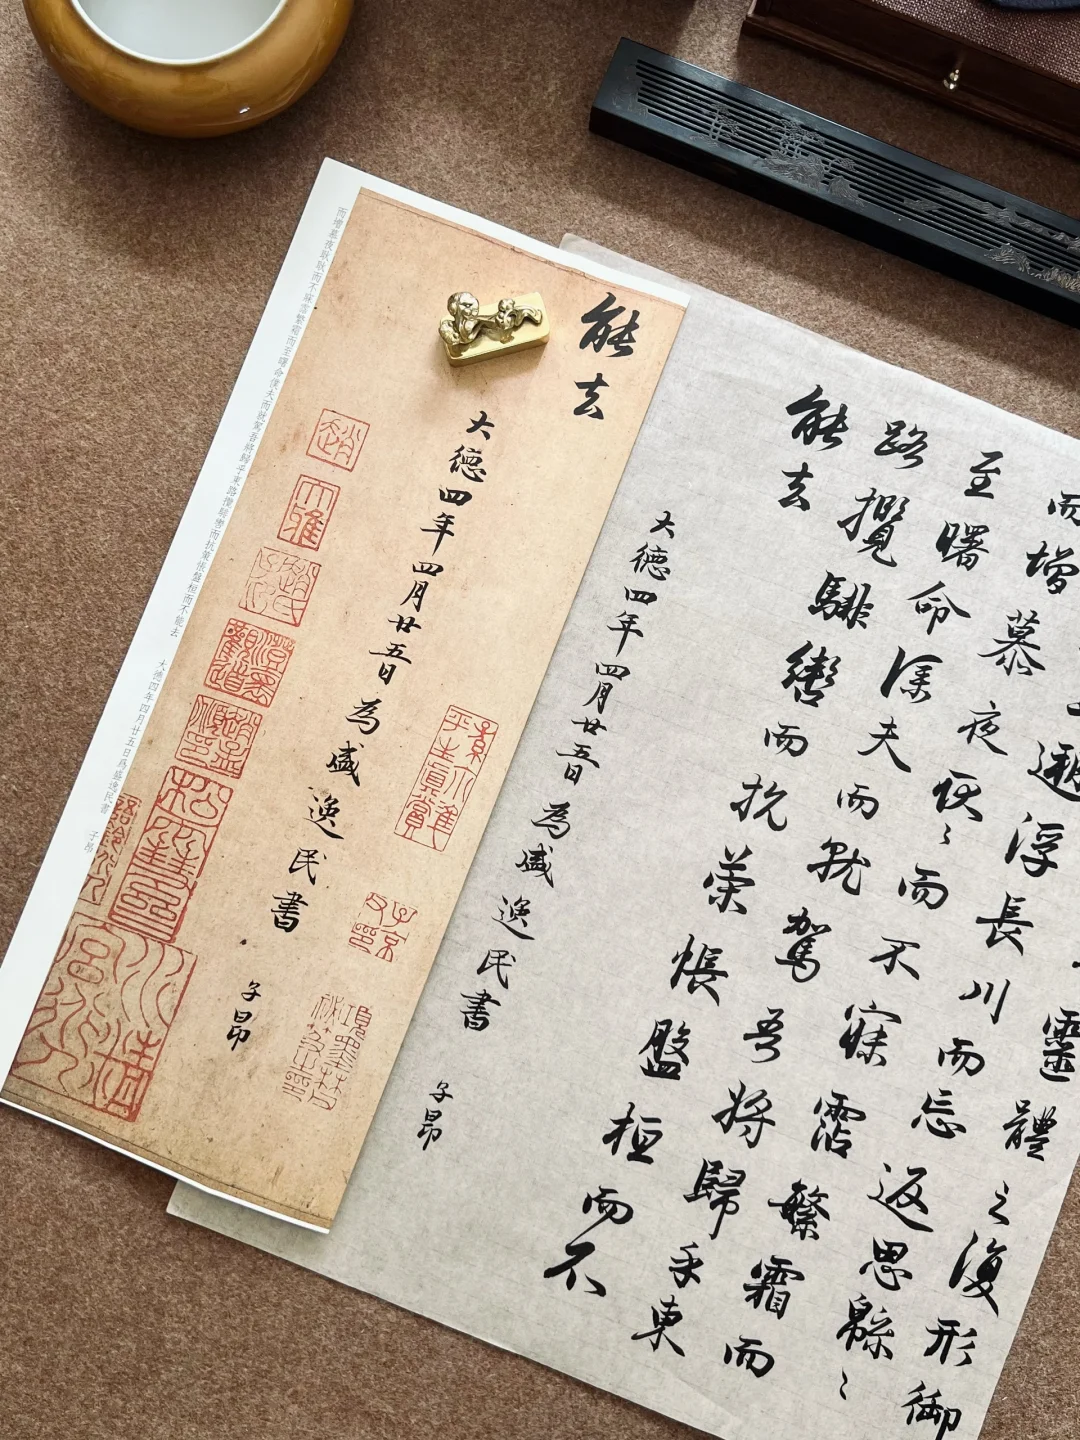 靈體之復形御
遡浮長川而忘返思緜〻
而增慕夜耿〻而不寐霑繁霜而
至曙命僕夫而就駕吾將歸乎東
路攬騑轡而抗策悵盤桓而不
能去
大德四年四月廿五日為盛逸民書
子昂
能去
大德四年四月廿五日為盛逸民書
子昂
趙
大雅
趙氏
澄懷觀道
子京父印
而增慕夜耿耿而不寐霑繁霜而至曙命僕夫而就駕吾將歸乎東路攬騑轡而抗策悵盤桓而不能去 大德四年四月廿五日爲盛逸民書 子昂